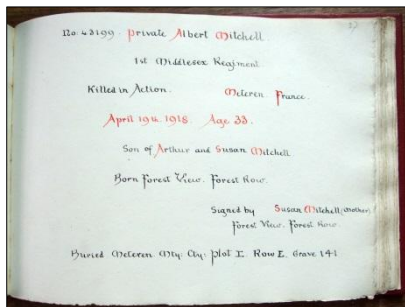 No. 43199. Private Albert Mitchell
1st Middlesex Regiment
Killed in Action. Meteren France.
April 19th. 1918. Age 33.
Son of Arthur and Susan Mitchell
Born Forest View. Forest Row.
Signed by Susan Mitchell (Mother)
Forest View. Forest Row
Buried Meteren Mty: Cty: Plot I. Row E. Grave 141